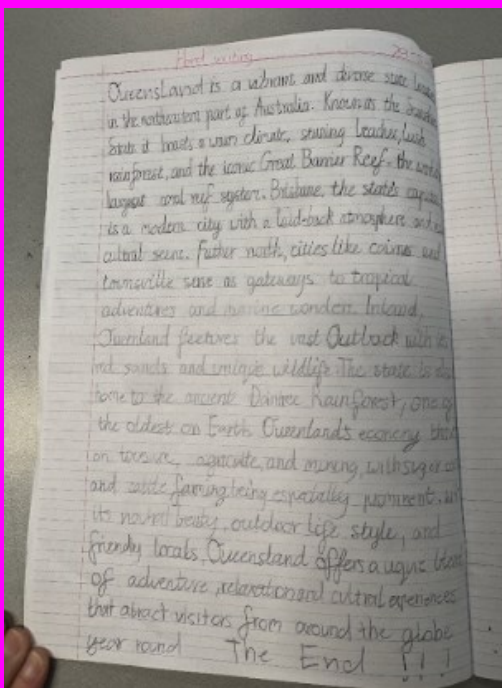 Hand writing
Queensland is a vibrant and diverse state
in the northeastern part of Australia. Known as the
State it boasts a warm climate, stuning beaches, lush
rainforest, and the iconic Great Barrier Reef. the
largest coral reef system. Brisbane, the state's
is a modern city with a laid-back atmosphere and
cultral scene. Futher north, cities like cairns and
townsville serve as gateways to tropical
adventures and marine wonders. Inland,
the vast Outback with
red sands and unique wildlife. The state is
home to the ancient Daintree Rainforest, one of
the oldest on Earth.
on and mining, with sugar
and cattle farming being especially prominent.
its beaty, outdoor life style, and
friendly locals. Queensland offers a
of adventure, and cultral
that atract visitors from around the globe
year round The End !!!